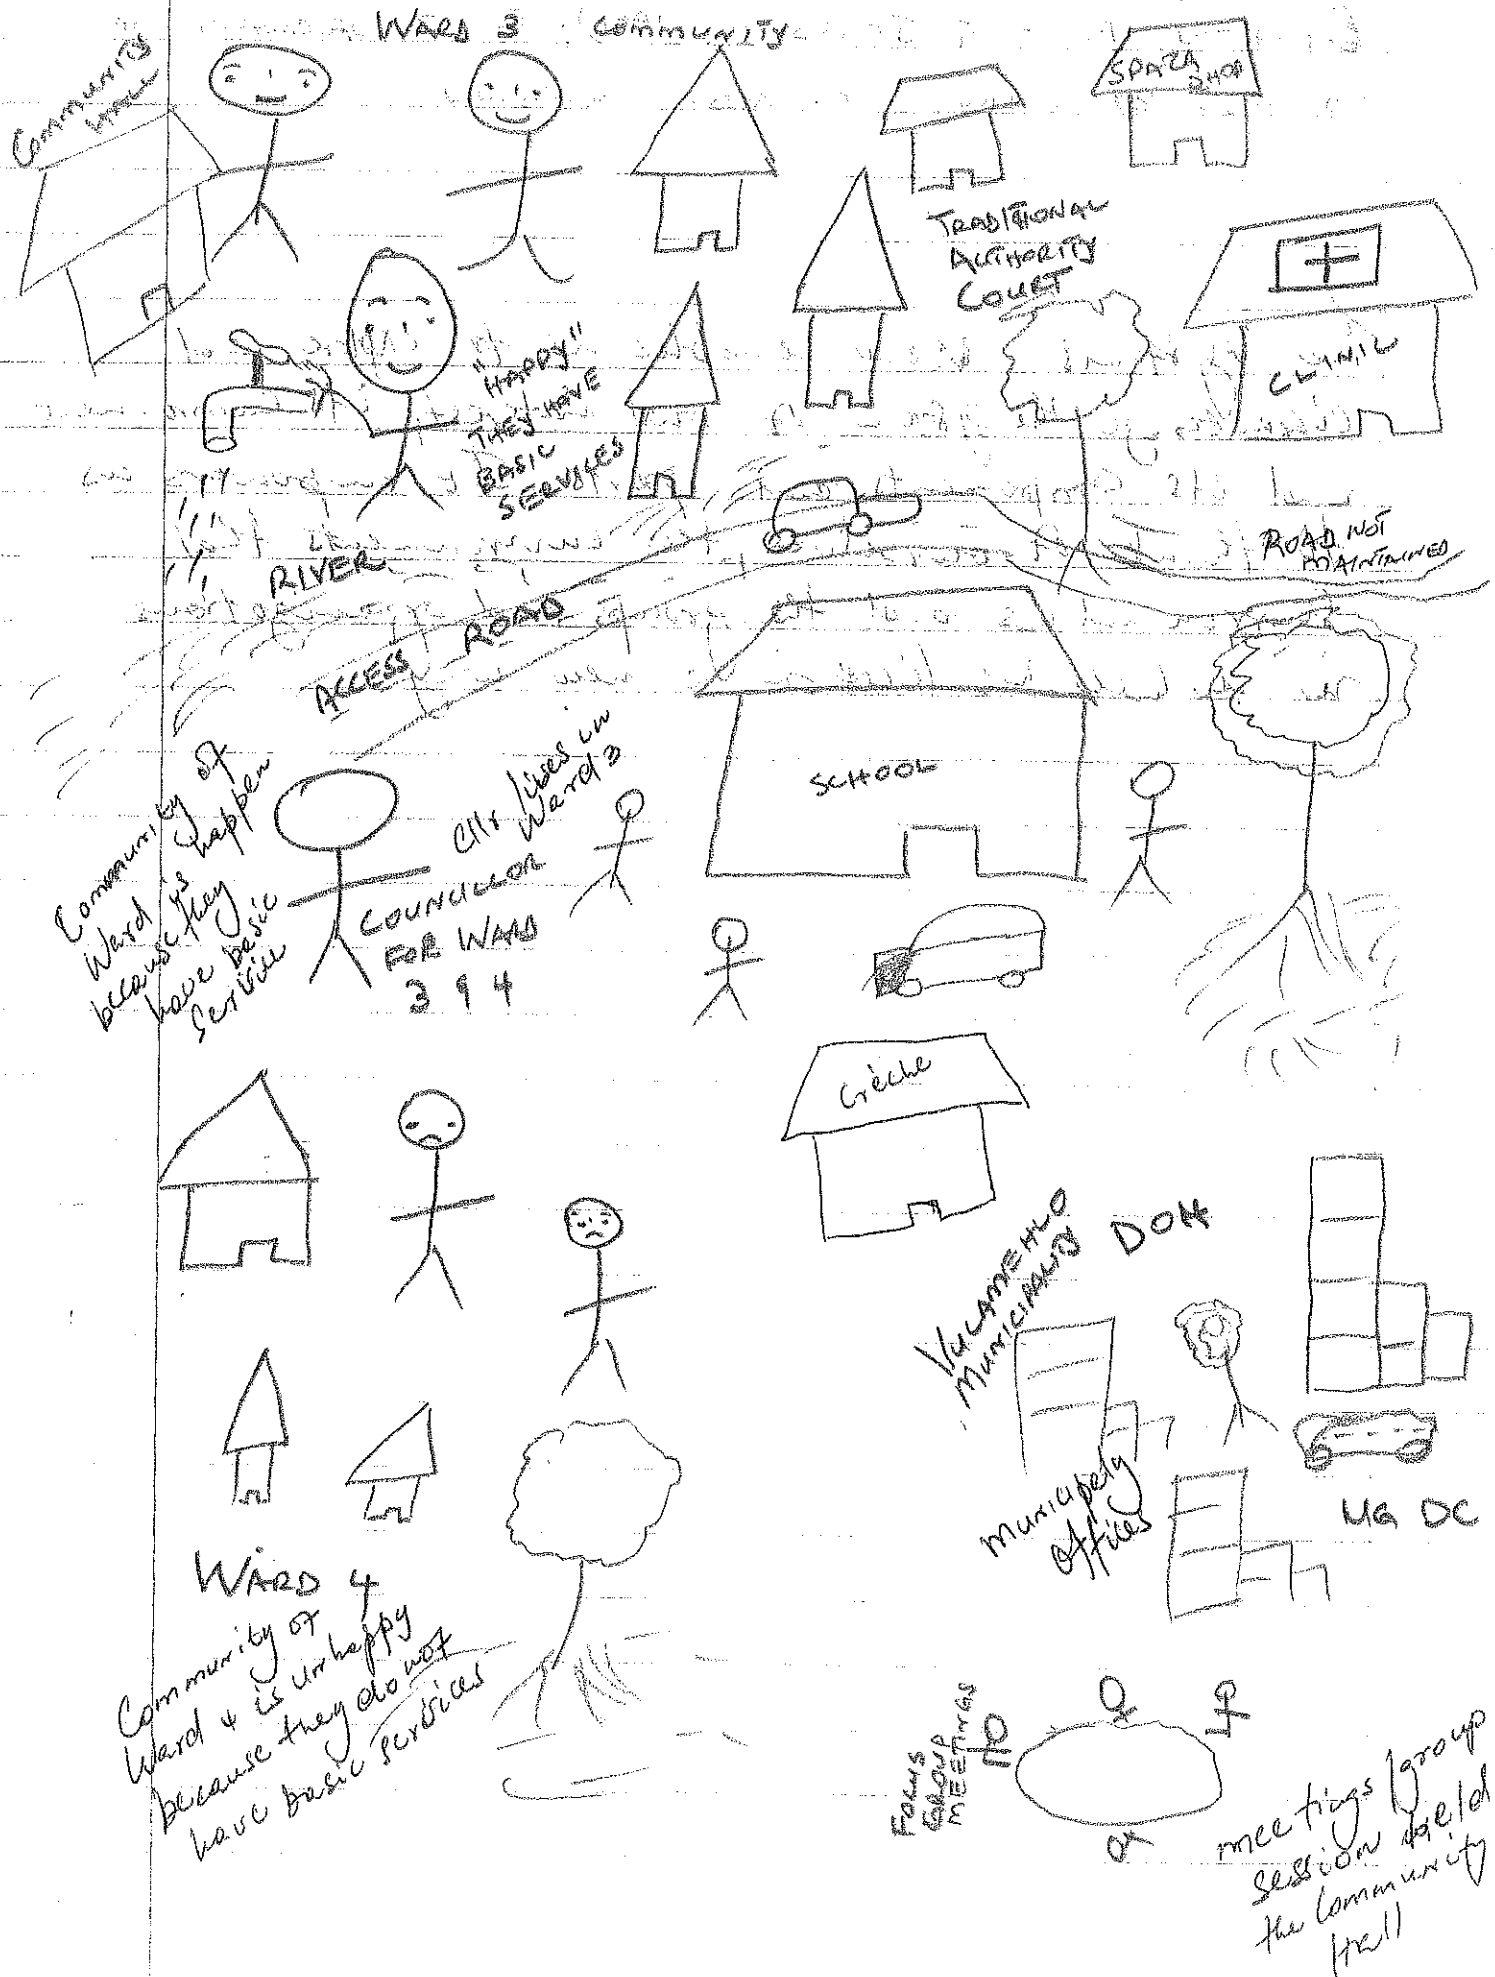 WARD 3 COMMUNITY
Community
Hall
SPAZA
SHOP
TRADITIONAL
AUTHORITY
COURT
CLINIC
"HAPPY"
THEY HAVE
BASIC
SERVICES
RIVER
ACCESS ROAD
ROAD NOT
MAINTAINED
SCHOOL
Community of
Ward is happen
because they
have basic
service
Cllr lives in
Ward 3
COUNCILLOR
FOR WARD
3 & 4
Crèche
VULAMEHLO
MUNICIPALITY
DOH
municipaly
offices
UG DC
WARD 4
Community of
Ward 4 is unhappy
because they do not
have basic services
FOKUS
GROUP
MEETINGS
meetings/group
session held
the Community
Hall